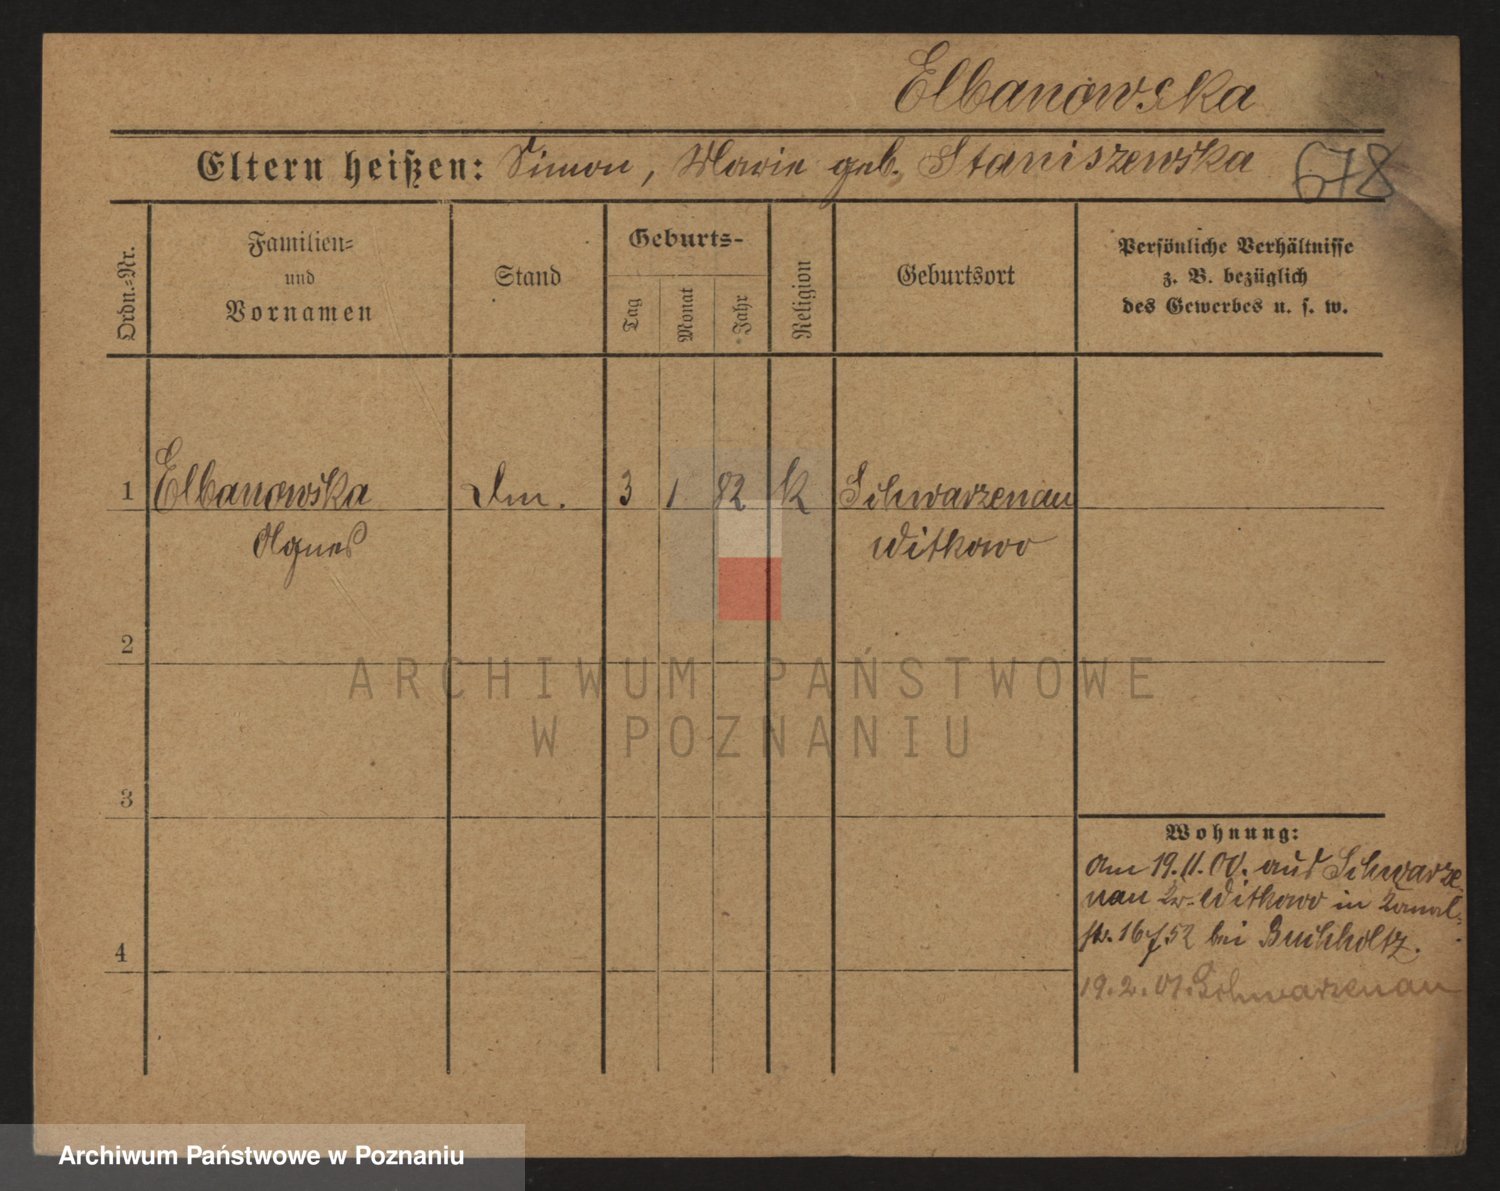 Elbanowska
Eltern heißen: Simon, Marie geb. Staniszewska
678
Ordn.-Nr.
Familien-
und
Vornamen
Stand
Geburts-
Tag
Monat
Jahr
Religion
Geburtsort
Persönliche Verhältnisse
z. B. bezüglich
des Gewerbes u. s. w.
1 Elbanowska Dm. 3 1 82 K Schwarzenau
Agnes Witkowo
2
ARCHIWUM PAŃSTWOWE
W POZNANIU
3
Wohnung:
Am 19.11.00. aus Schwarze-
nau Kr. Witkowo in Kanal-
str. 16/52 bei Buchholtz.
4
19.2.01. Schwarzenau
Archiwum Państwowe w Poznaniu